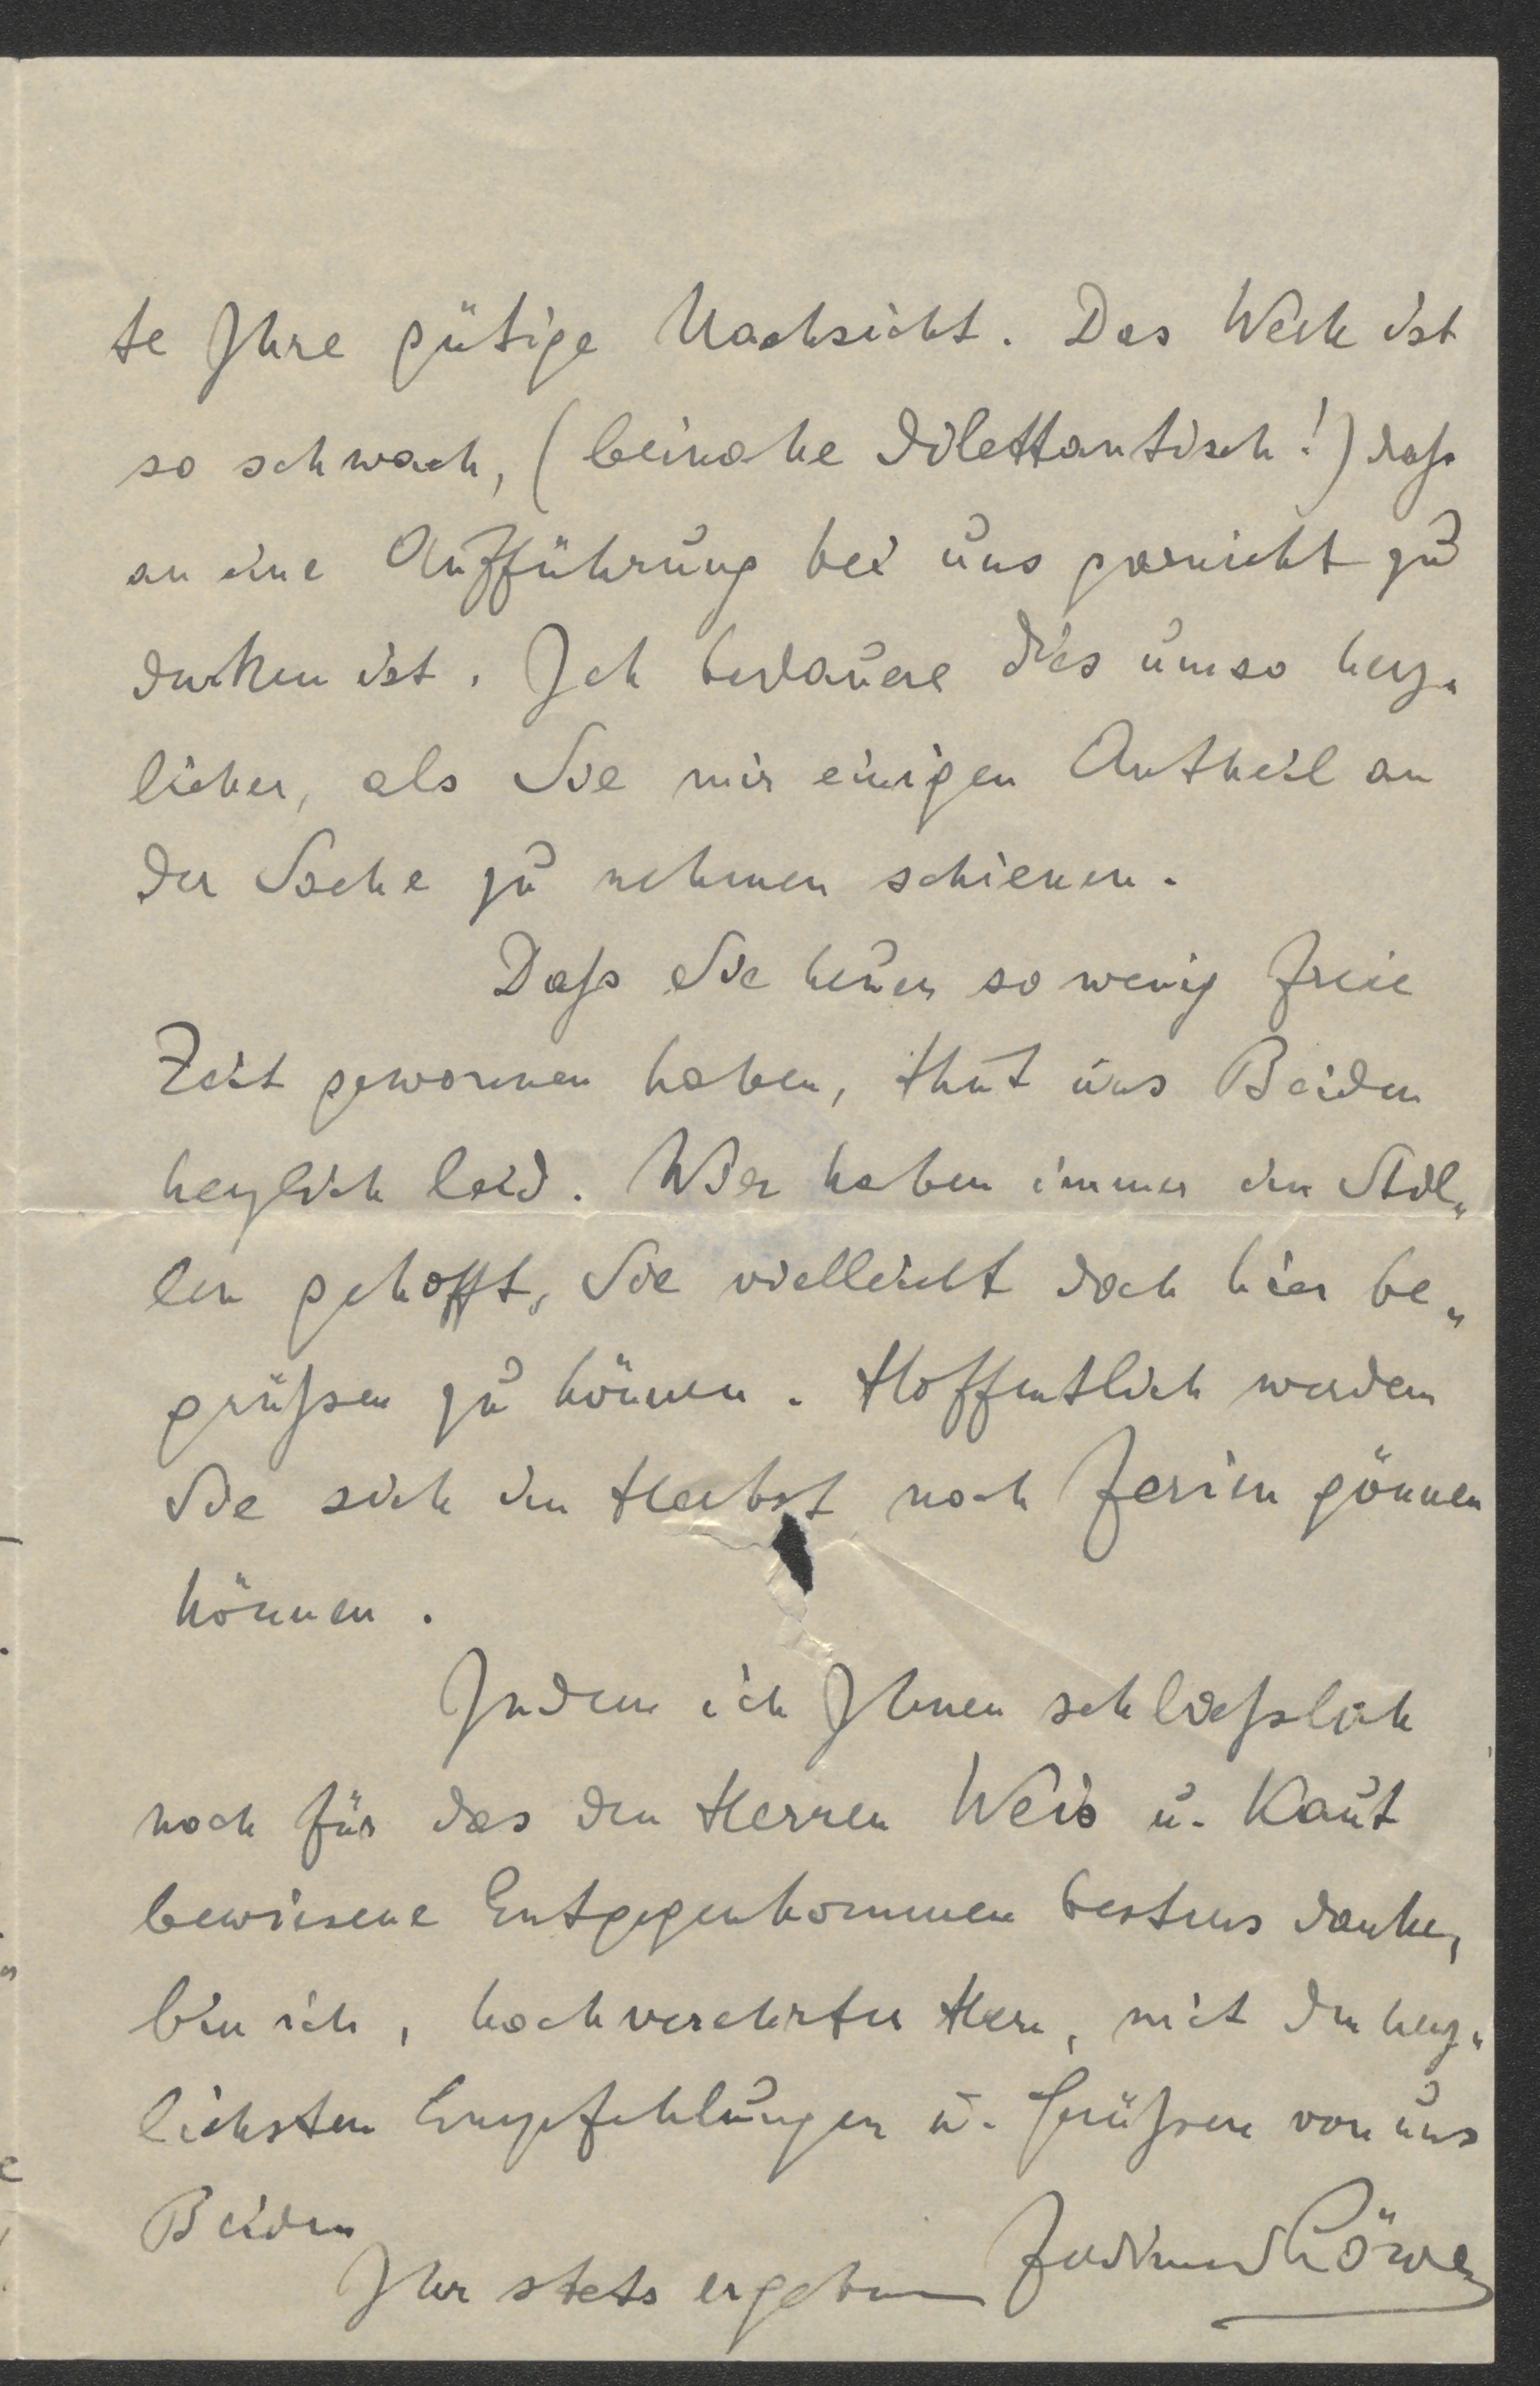 te Ihre gütige Nachsicht. Das Werk ist
so schwach, (beinahe dilettantisch!) daß
an eine Aufführung bei uns garnicht zu
denken ist. Ich bedauere dies umso herz„
licher, als Sie mir einigen Antheil an
der Sache zu nehmen schienen.
Daß Sie heuer so wenig freie
Zeit gewonnen haben, thut uns Beiden
herzlich leid. Wir haben immer im Stil„
len gehofft, Sie vielleicht doch hier be„
grüßen zu können. Hoffentlich werden
Sie sich im Herbst noch Ferien gönnen
können.
Indem ich Ihnen schließlich
noch für das den Herren Weis u. Kaut
bewiesene Entgegenkommen bestens danke,
bin ich, hochverehrter Herr, mit den herz„
lichsten Empfehlungen u. Grüßen von uns
Beiden
Ihr stets ergebener Ferdinand Löwe